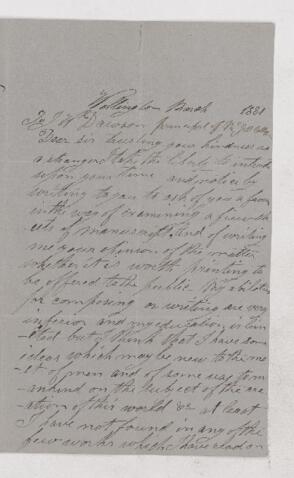 Wallingham March 1881
To J W Dawson principal of McGill College
Dear sir trusting your kindness as
a stranger I take the liberty to intrude
upon your time and notice by
writing to you to ask of you a favor
in the way of examining a few sh
eets of manuscript and of writing
me your opinion of the matter
whether it is worth printing to
be offered to the public My abilities
for composing or writing are very
inferior and my education is lim
ited but I think that I have some
ideas which may be new to the mo
st of men and of some use to m
ankind on the subject of the cre
ation of this world &c at least
I have not found in any of the
few works which I have read on